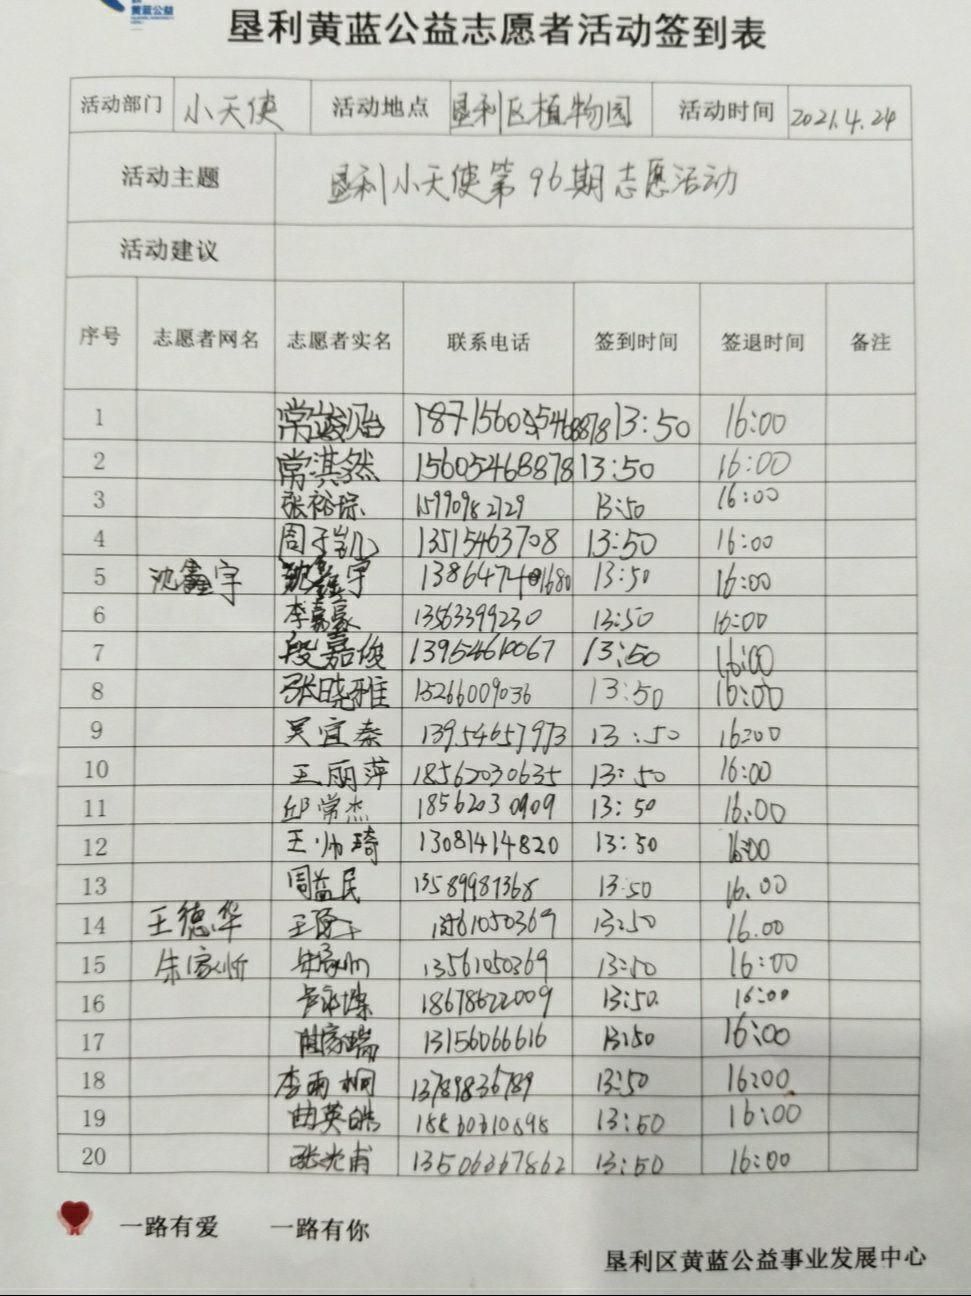 黄蓝公益
垦利黄蓝公益志愿者活动签到表
活动部门 小天使 活动地点 垦利区植物园 活动时间 2021.4.24
活动主题 垦利小天使第96期志愿活动
活动建议
序号 志愿者网名 志愿者实名 联系电话 签到时间 签退时间 备注
1 13:50 16:00
2 常淇然 15605468878 13:50 16:00
3 张裕琮 15990982729 13:50 16:00
4 周子凯 13515463708 13:50 16:00
5 沈鑫宇 沈鑫宇 13:50 16:00
6 李嘉豪 13563399230 13:50 16:00
7 段嘉俊 13954610067 13:50 16:00
8 张晓雅 15266009036 13:50 16:00
9 吴宜秦 13954657973 13:50 16:00
10 王丽萍 18562030635 13:50 16:00
11 邱常杰 18562030909 13:50 16:00
12 王帅琦 13081414820 13:50 16:00
13 周益民 13589981368 13:50 16.00
14 王德华 13:50 16.00
15 朱家昕 13561050369 13:50 16:00
16 18678622009 13:50 16:00
17 13156066616 13:50 16:00
18 李雨桐 13789836789 13:50 16:00
19 曲英皓 13:50 16:00
20 13506367862 13:50 16:00
一路有爱 一路有你
垦利区黄蓝公益事业发展中心